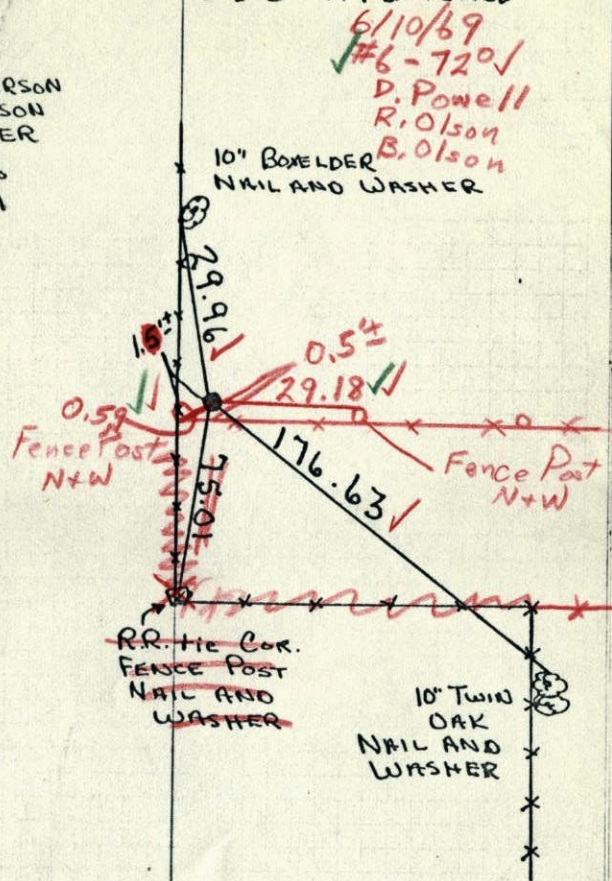 6/10/69
#6 - 72°
D. Powell
R. Olson
B. Olson
RSON
SON
ER
10" BOXELDER
NAIL AND WASHER
29.96
1.5'±
0.5'±
29.18
0.59
Fence Post
N+W
176.63
Fence Post
N+W
75.01
R.R. tie COR.
FENCE POST
NAIL AND
WASHER
10" TWIN
OAK
NAIL AND
WASHER